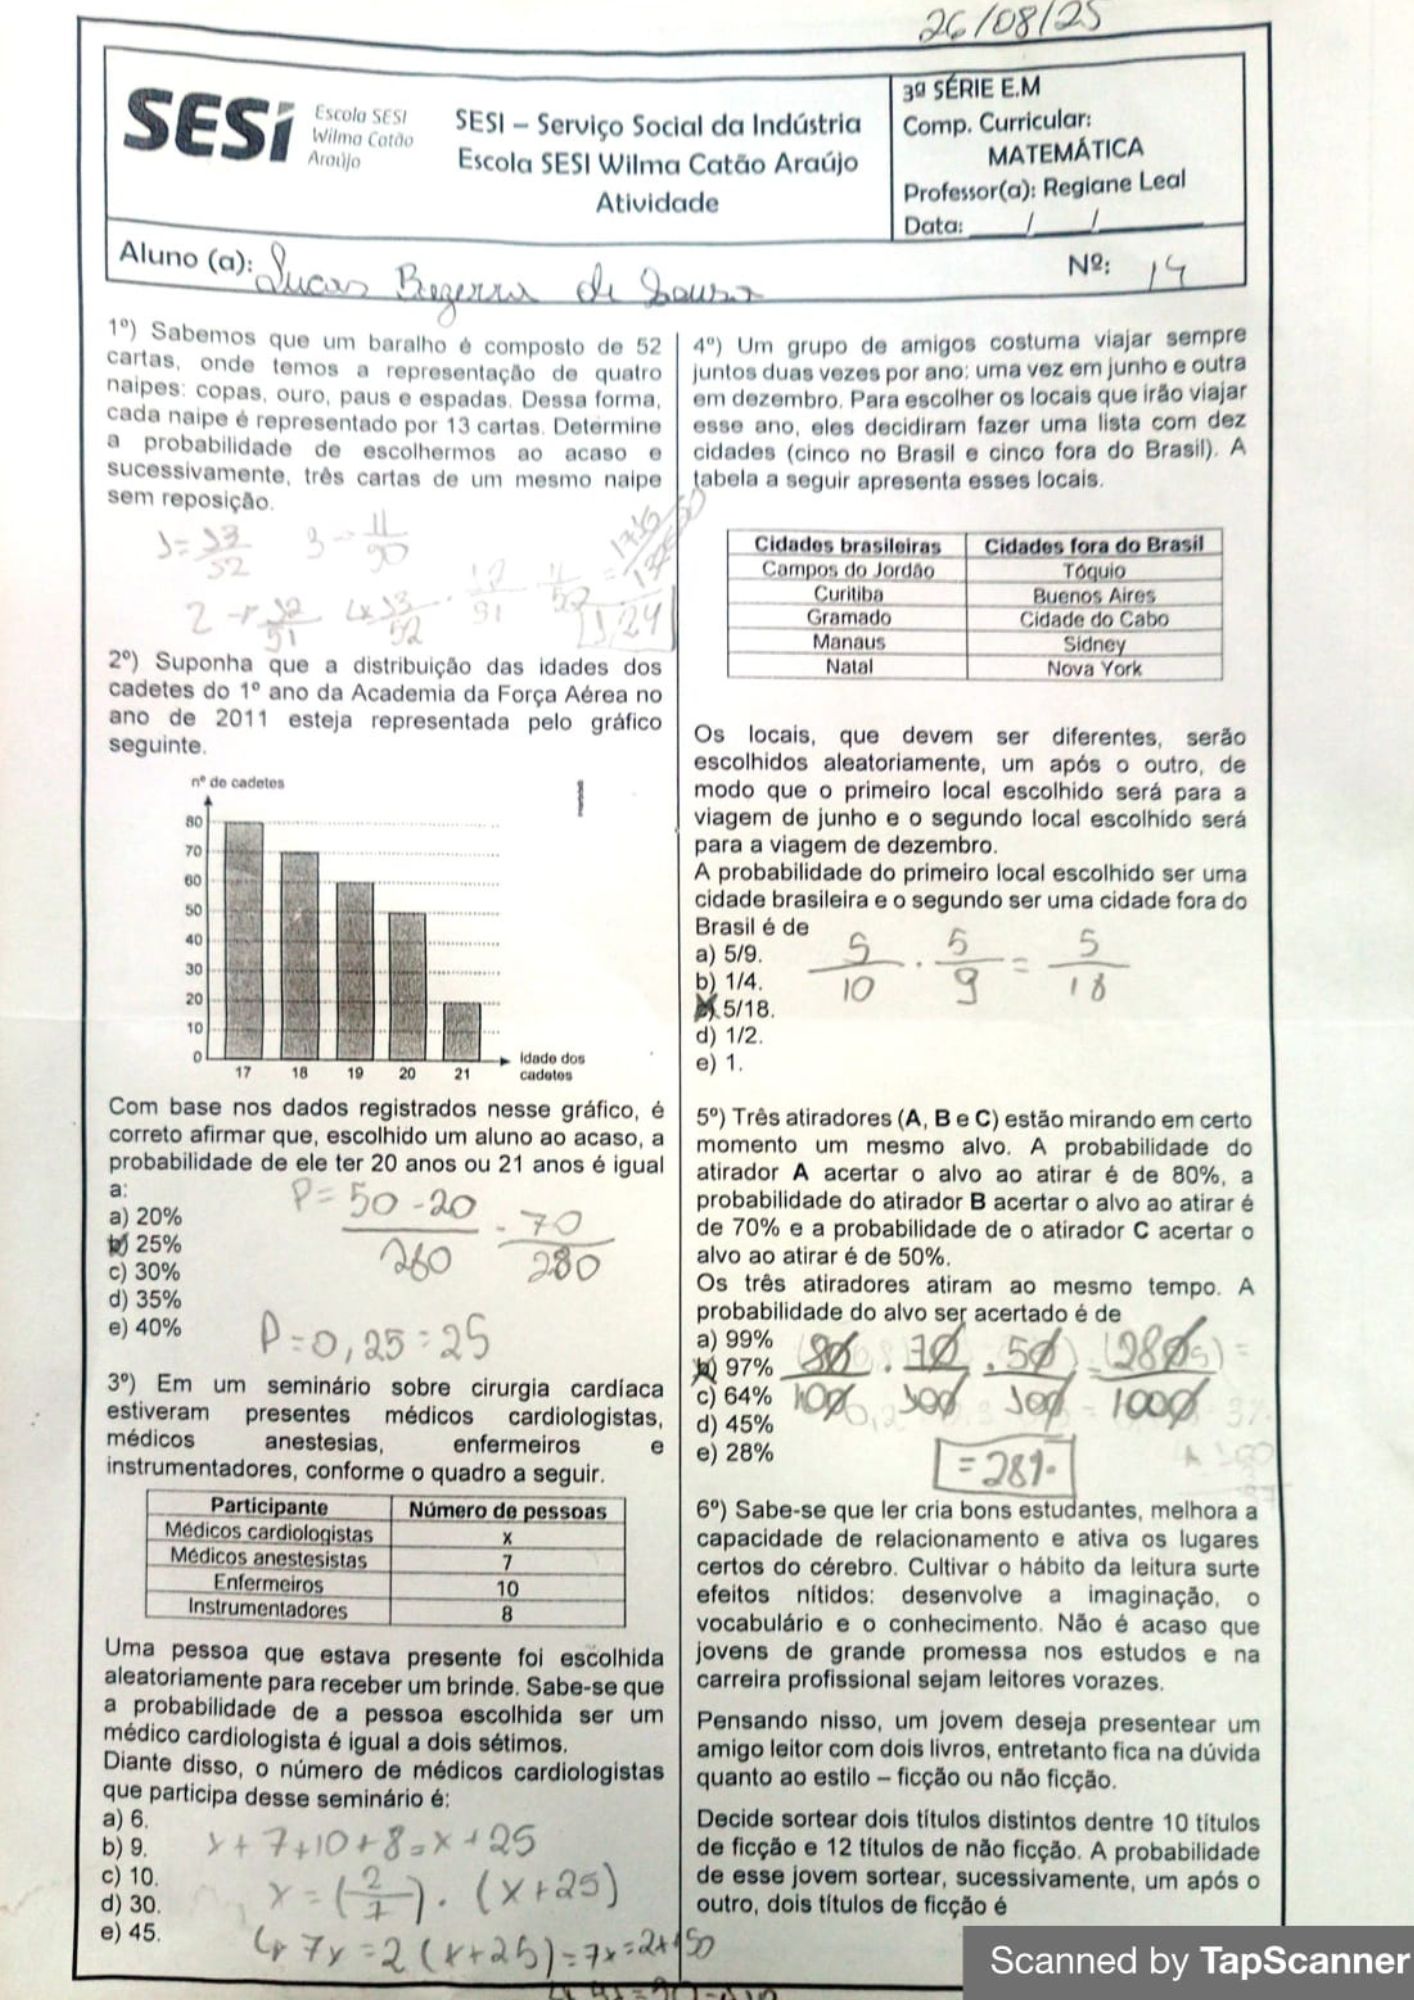 26/08/25
SESI
Escola SESI
Wilma Catão
Araújo
SESI – Serviço Social da Indústria
Escola SESI Wilma Catão Araújo
Atividade
3ª SÉRIE E.M
Comp. Curricular:
MATEMÁTICA
Professor(a): Regiane Leal
Data: / /
Aluno (a): Lucas Bezerra de Sousa
Nº: 14
1º) Sabemos que um baralho é composto de 52
cartas, onde temos a representação de quatro
naipes: copas, ouro, paus e espadas. Dessa forma,
cada naipe é representado por 13 cartas. Determine
a probabilidade de escolhermos ao acaso e
sucessivamente, três cartas de um mesmo naipe
sem reposição.
2º) Suponha que a distribuição das idades dos
cadetes do 1º ano da Academia da Força Aérea no
ano de 2011 esteja representada pelo gráfico
seguinte.
nº de cadetes
80
70
60
50
40
30
20
10
0
17 18 19 20 21
Idade dos
cadetes
Com base nos dados registrados nesse gráfico, é
correto afirmar que, escolhido um aluno ao acaso, a
probabilidade de ele ter 20 anos ou 21 anos é igual
a:
a) 20%
b) 25%
c) 30%
d) 35%
e) 40%
P = 50 - 20
260
= 70
280
P = 0,25 = 25
3º) Em um seminário sobre cirurgia cardíaca
estiveram presentes médicos cardiologistas,
médicos anestesias, enfermeiros e
instrumentadores, conforme o quadro a seguir.
Participante Número de pessoas
Médicos cardiologistas x
Médicos anestesistas 7
Enfermeiros 10
Instrumentadores 8
Uma pessoa que estava presente foi escolhida
aleatoriamente para receber um brinde. Sabe-se que
a probabilidade de a pessoa escolhida ser um
médico cardiologista é igual a dois sétimos.
Diante disso, o número de médicos cardiologistas
que participa desse seminário é:
a) 6.
b) 9.
c) 10.
d) 30.
e) 45.
x + 7 + 10 + 8 = x + 25
x = (2/7) . (x + 25)
7x = 2(x+25) = 7x = 2x+50
4º) Um grupo de amigos costuma viajar sempre
juntos duas vezes por ano: uma vez em junho e outra
em dezembro. Para escolher os locais que irão viajar
esse ano, eles decidiram fazer uma lista com dez
cidades (cinco no Brasil e cinco fora do Brasil). A
tabela a seguir apresenta esses locais.
Cidades brasileiras Cidades fora do Brasil
Campos do Jordão Tóquio
Curitiba Buenos Aires
Gramado Cidade do Cabo
Manaus Sidney
Natal Nova York
Os locais, que devem ser diferentes, serão
escolhidos aleatoriamente, um após o outro, de
modo que o primeiro local escolhido será para a
viagem de junho e o segundo local escolhido será
para a viagem de dezembro.
A probabilidade do primeiro local escolhido ser uma
cidade brasileira e o segundo ser uma cidade fora do
Brasil é de
a) 5/9.
b) 1/4.
c) 5/18.
d) 1/2.
e) 1.
5/10 . 5/9 = 5/18
5º) Três atiradores (A, B e C) estão mirando em certo
momento um mesmo alvo. A probabilidade do
atirador A acertar o alvo ao atirar é de 80%, a
probabilidade do atirador B acertar o alvo ao atirar é
de 70% e a probabilidade de o atirador C acertar o
alvo ao atirar é de 50%.
Os três atiradores atiram ao mesmo tempo. A
probabilidade do alvo ser acertado é de
a) 99%
b) 97%
c) 64%
d) 45%
e) 28%
80/100 . 70/100 . 50/100 = 280/1000
= 28%
6º) Sabe-se que ler cria bons estudantes, melhora a
capacidade de relacionamento e ativa os lugares
certos do cérebro. Cultivar o hábito da leitura surte
efeitos nítidos: desenvolve a imaginação, o
vocabulário e o conhecimento. Não é acaso que
jovens de grande promessa nos estudos e na
carreira profissional sejam leitores vorazes.
Pensando nisso, um jovem deseja presentear um
amigo leitor com dois livros, entretanto fica na dúvida
quanto ao estilo – ficção ou não ficção.
Decide sortear dois títulos distintos dentre 10 títulos
de ficção e 12 títulos de não ficção. A probabilidade
de esse jovem sortear, sucessivamente, um após o
outro, dois títulos de ficção é
Scanned by TapScanner